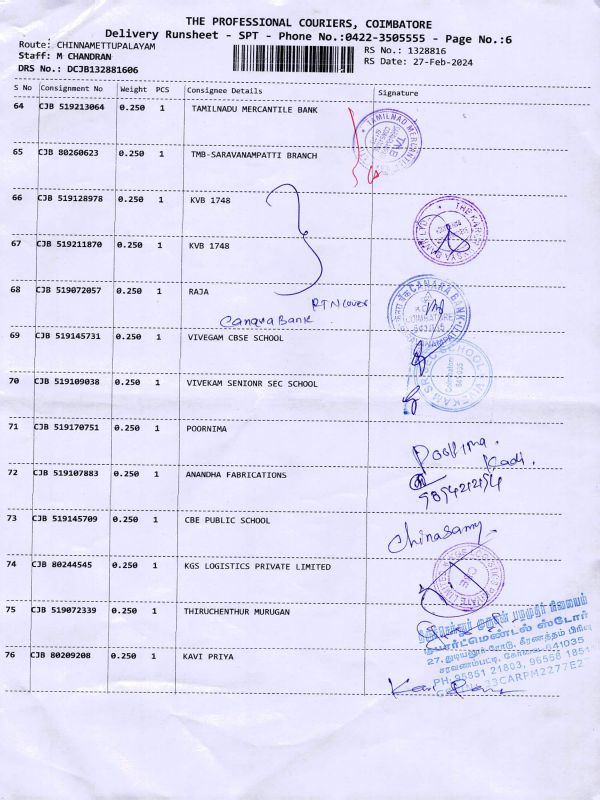 THE PROFESSIONAL COURIERS, COIMBATORE
Delivery Runsheet - SPT - Phone No.:0422-3505555 - Page No.:6
Route: CHINNAMETTUPALAYAM
Staff: M CHANDRAN
DRS No.: DCJB132881606
RS No.: 1328816
RS Date: 27-Feb-2024
S No Consignment No Weight PCS Consignee Details Signature
64 CJB 519213064 0.250 1 TAMILNADU MERCANTILE BANK
65 CJB 80260623 0.250 1 TMB-SARAVANAMPATTI BRANCH
66 CJB 519128978 0.250 1 KVB 1748
67 CJB 519211870 0.250 1 KVB 1748
68 CJB 519072057 0.250 1 RAJA
RTN cover
Canara Bank
CANARA BANK
COIMBATORE
69 CJB 519145731 0.250 1 VIVEGAM CBSE SCHOOL
70 CJB 519109038 0.250 1 VIVEKAM SENIONR SEC SCHOOL
71 CJB 519170751 0.250 1 POORNIMA
Poornima.
Kadi.
72 CJB 519107883 0.250 1 ANANDHA FABRICATIONS
73 CJB 519145709 0.250 1 CBE PUBLIC SCHOOL
Chinasamy
74 CJB 80244545 0.250 1 KGS LOGISTICS PRIVATE LIMITED
75 CJB 519072339 0.250 1 THIRUCHENTHUR MURUGAN
டிபார்ட்மெண்டல் ஸ்டோர்
சரவணம்பட்டி, கோவை 641035
PH: 95851 21803, 96558 1851
33CARPM2277E2
76 CJB 80209208 0.250 1 KAVI PRIYA